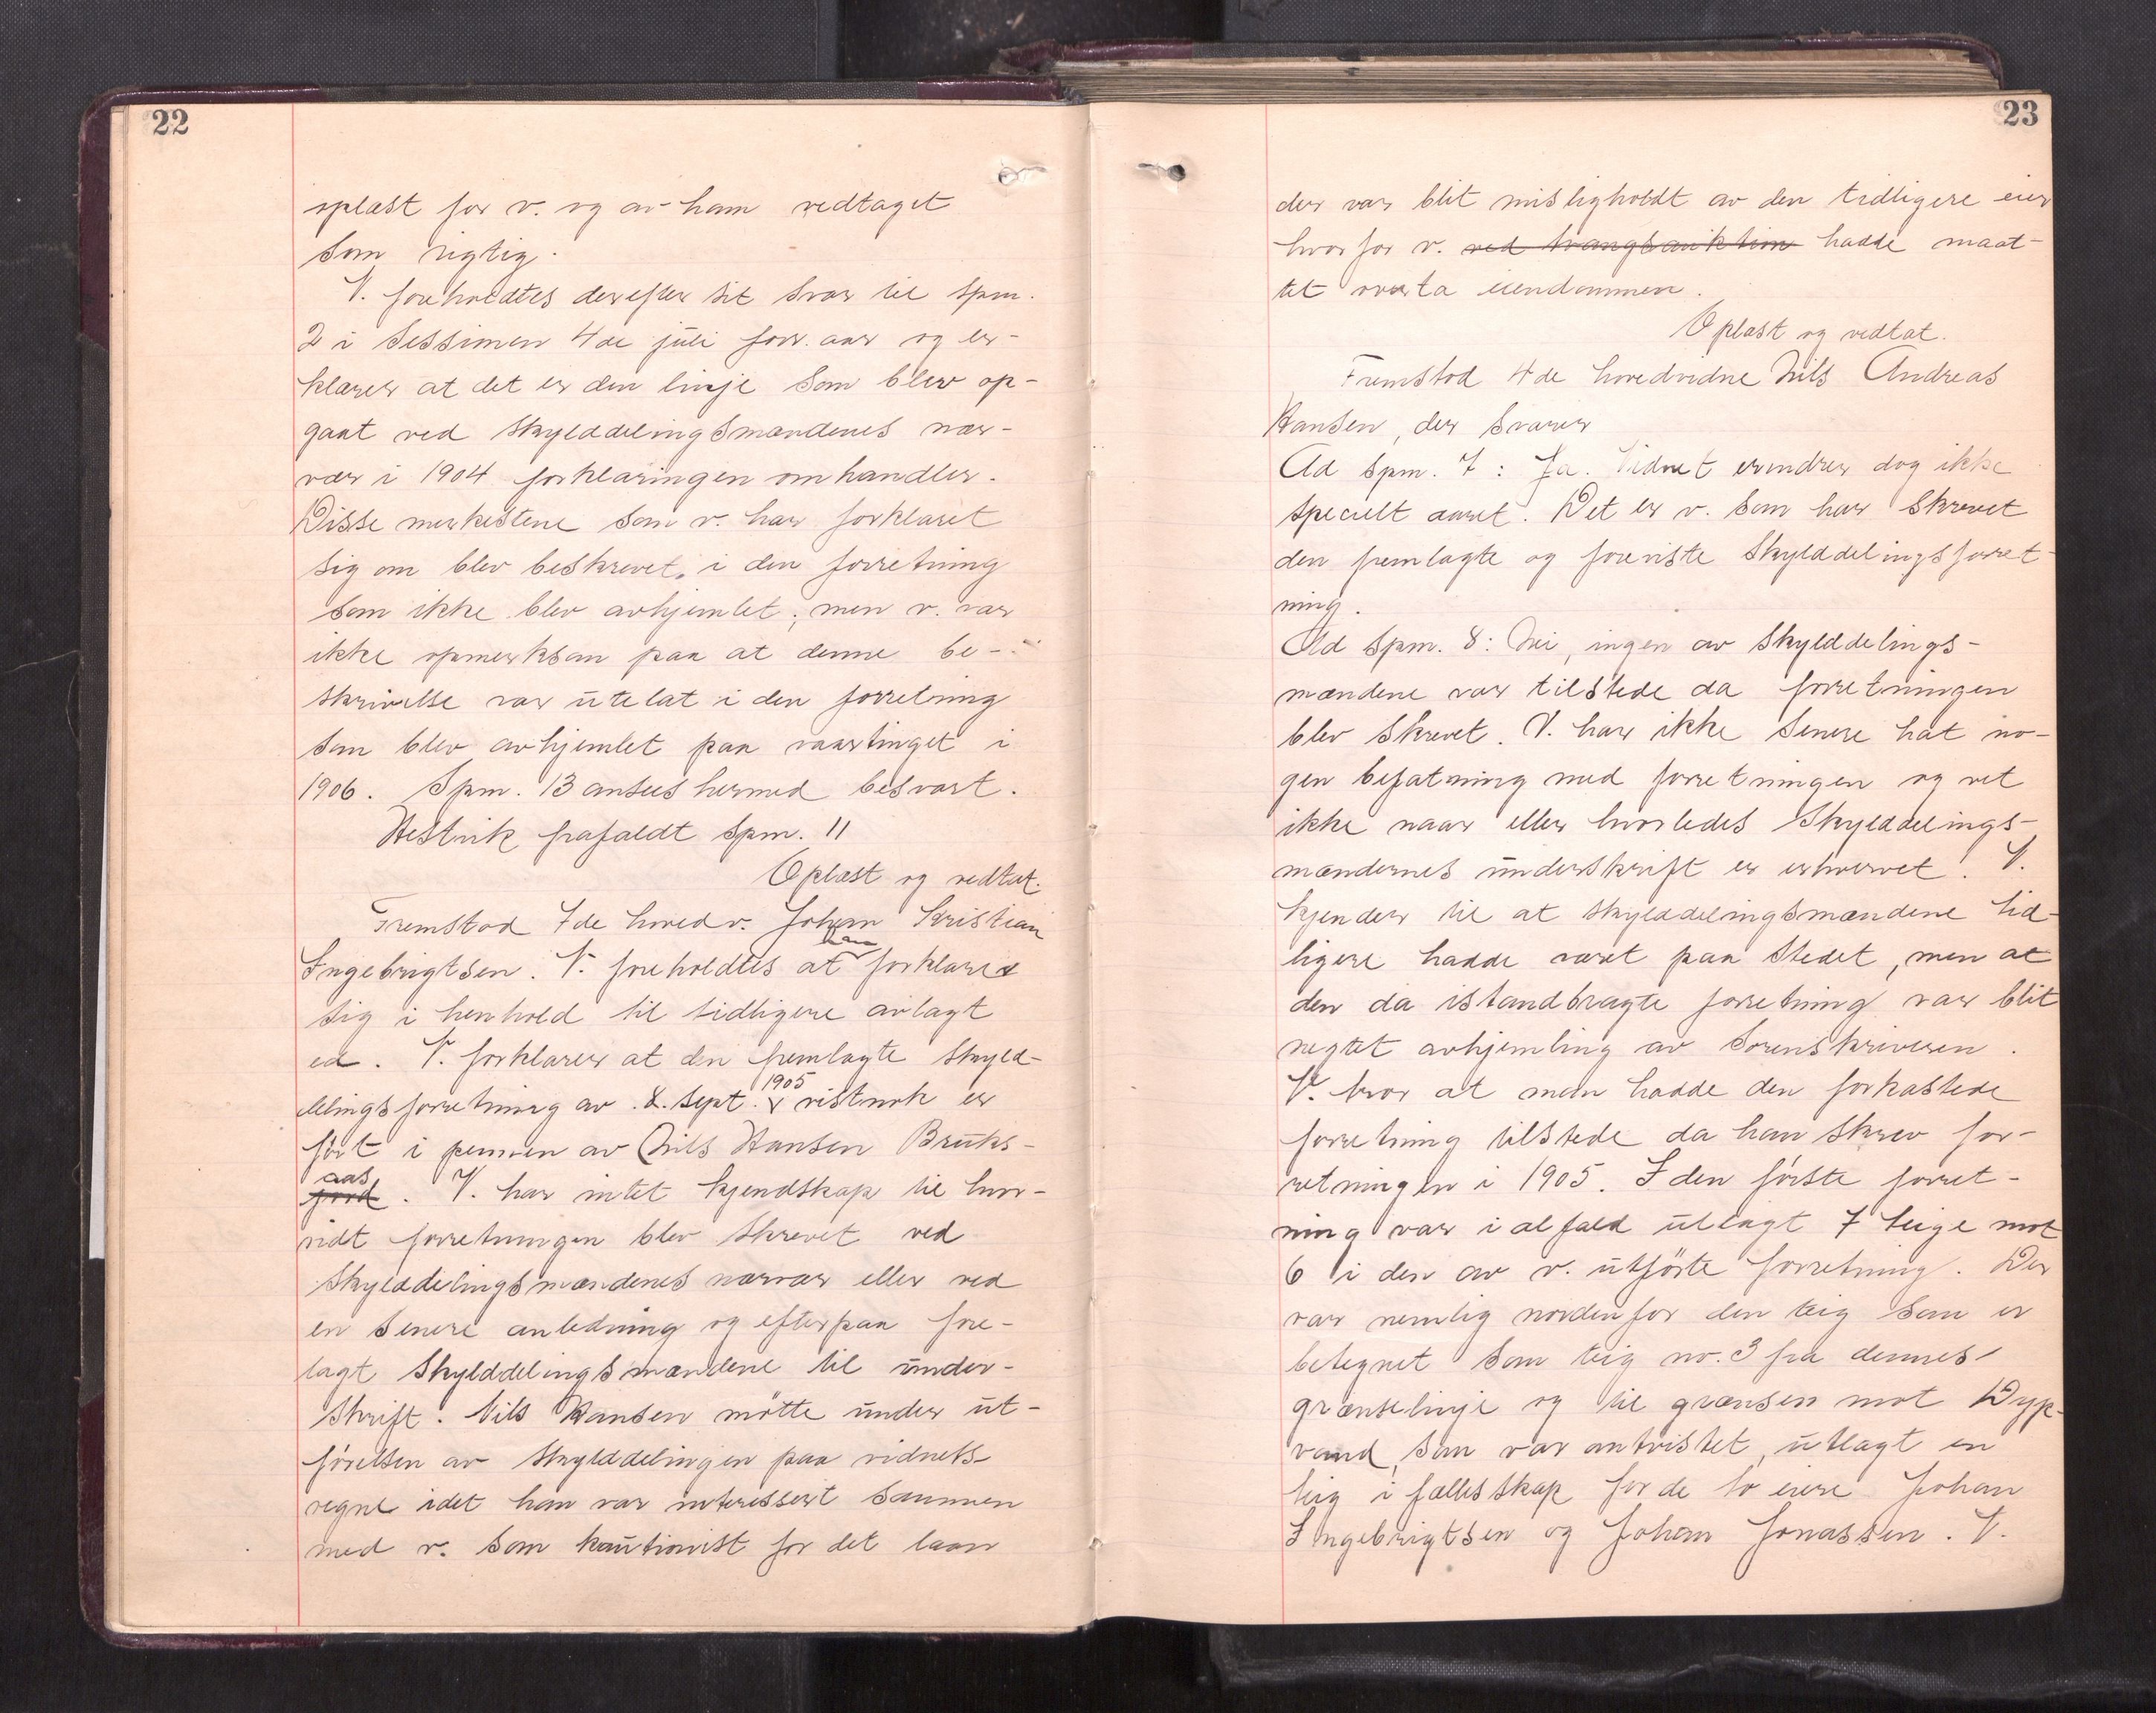 22
oplæst for v. og av ham vedtaget
som rigtig.
V. foreholdtes derefter sit svar til spm.
2 i sessionen 4de juli forr. aar og er-
klærer at det er den linje som blev op-
gaat ved skylddelingsmændenes nær-
vær i 1904 forklaringen omhandler.
Disse merkestene som v. har forklaret
sig om blev beskrevet, i den forretning
som ikke blev avhjemlet; men v. var
ikke opmerksom paa at denne be-
skrivelse var utelat i den forretning
som blev avhjemlet paa vaartinget i
1906. Spm. 13 ansees hermed besvart.
Hestvik frafaldt spm. 11
Oplæst og vedtat.
Fremstod 7de hovedv. Johan Kristian
Ingebrigtsen. V. foreholdtes at han forklarer
sig i henhold til tidligere avlagt
ed. V. forklarer at den fremlagte skyld-
delingsforretning av 8. sept. 1905 vistnok er
ført i pennen av Nils Hansen Bruks-
fjord aas. V. har intet kjendskap til hvor-
vidt forretningen blev skrevet ved
skylddelingsmændenes nærvær eller ved
en senere anledning og efterpaa fore-
lagt skylddelingsmændene til under-
skrift. Nils Hansen møtte under ut-
førelsen av skylddelingen paa vidnets
vegne idet han var interessert sammen
med v. som kautionist for det laan
23
der var blit misligholdt av den tidligere eier
hvorfor v. ved tvangsauktion hadde maat-
tet overta eiendommen.
Oplæst og vedtat.
Fremstod 4de hovedvidne Nils Andreas
Hansen, der svarer
Ad spm. 7: Ja. Vidnet erindrer dog ikke
specielt aaret. Det er v. som har skrevet
den fremlagte og foreviste skylddelingsforret-
ning.
Ad spm. 8: Nei, ingen av skylddelings-
mændene var tilstede da forretningen
blev skrevet. V. har ikke senere hat no-
gen befatning med forretningen og vet
ikke naar eller hvorledes skylddelings-
mændernes underskrift er erhvervet. V.
kjender til at skylddelingsmændene tid-
ligere hadde været paa stedet, men at
den da istandbragte forretning var blit
negtet avhjemling av sorenskriveren.
V. tror at man hadde den forkastede
forretning tilstede da han skrev for-
retningen i 1905. I den første forret-
ning var i alfald utlagt 7 teige mot
6 i den av v. utførte forretning. Der
var nemlig nordenfor den teig som er
betegnet som teig no. 3 fra dennes
grænselinje og til grænsen mot Dyp-
vand, som var omtvistet, utlagt en
teig i fællesskap for de to eiere Johan
Ingebrigtsen og Johan Jonassen. V.